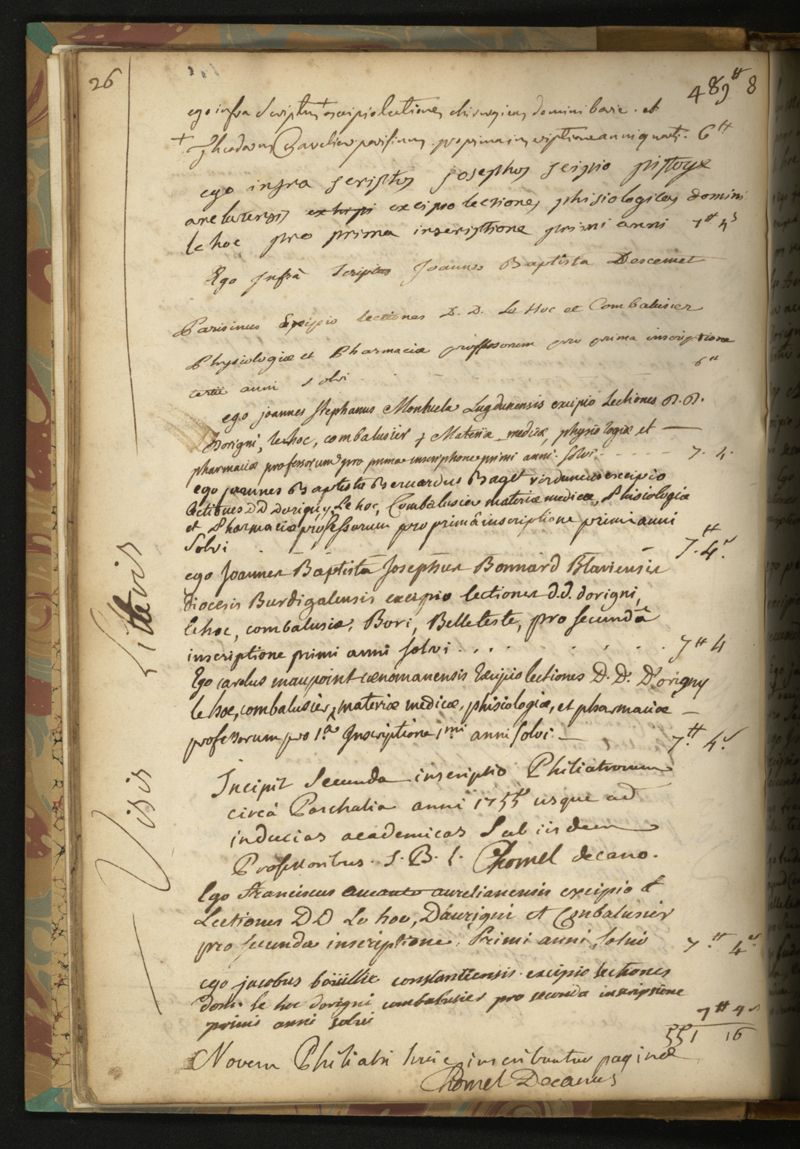 26
489ᵗᵗ 8
ego infra scriptus excipio lectiones chirurgicas domini basie. et
+ Theodorus Chavelier parisinus pro prima inscriptione anni quarti. 6ᵗᵗ
ego infra scriptus josephus scipio pistoye
arelatensis excipio lectiones phisiologicas domini
le hoc pro prima inscriptione primi anni 7ᵗᵗ 4ˢ
Ego Infrà scriptus Joannes Baptista Descemet
Parisinus Excipio lectiones D. D. Le Hoc et Combalusier
Physiologiæ et Pharmaciæ professorum pro prima inscriptione
tertii anni solvi 6ᵗᵗ
ego joannes stephanus Montucla Lugdunensis excipio Lectiones D.D.
Dorigni, lehoc, combalusier, Materiæ medicæ, physiologiæ et
pharmaciæ professorum pro prima inscriptione primi anni. solvi 7. 4.
ego joannes Baptista Bernardus Baget virdunensis excipio
lectiones DD dorigny, Le hoc, Combalusier materiæ medicæ, Phisiologiæ
et Pharmaciæ professorum pro primâ inscriptione primi anni
Solvi 7ᵗᵗ. 4ˢ.
ego Joannes Baptista Josephus Bonnard Blaviensis
diocesis Burdigalensis excipio lectiones d.d. dorigni,
Lehoc, combalusier, Bori, Belleteste, pro secundâ
inscriptione primi anni solvi . . . . . . . 7ᵗᵗ 4
Ego carolus maupoint cænomanensis Excipio lectiones D. D. D'origny
le hoc, combalusier, materiæ medicæ, phisiologiæ, et pharmaciæ
professorum pro 1ᵃ Inscriptione 1ᵐⁱ anni solvi. 7ᵗᵗ. 4ˢ.
Incipit Secunda inscriptio Philiatrorum
circà Paschalia anni 1755 usque ad
inducias academicas Sub iisdem
Professoribus. J. B. L. Chomel decano.
Ego Franciscus aurelianensis excipio
Lectiones DD Le hoc, Daurigni et Combalusier
pro secunda inscriptione. Primi anni, solvi 7ᵗᵗ 4ˢ
ego jacobus boüillie constantiensis excipio lectiones
dom. le hoc dorigni combalusier pro secunda inscriptione
primi anni solvi 7ᵗᵗ 4ˢ
551 16
Novem Philiatri huic inscribuntur paginæ
Chomel Decanus
Visis Litteris